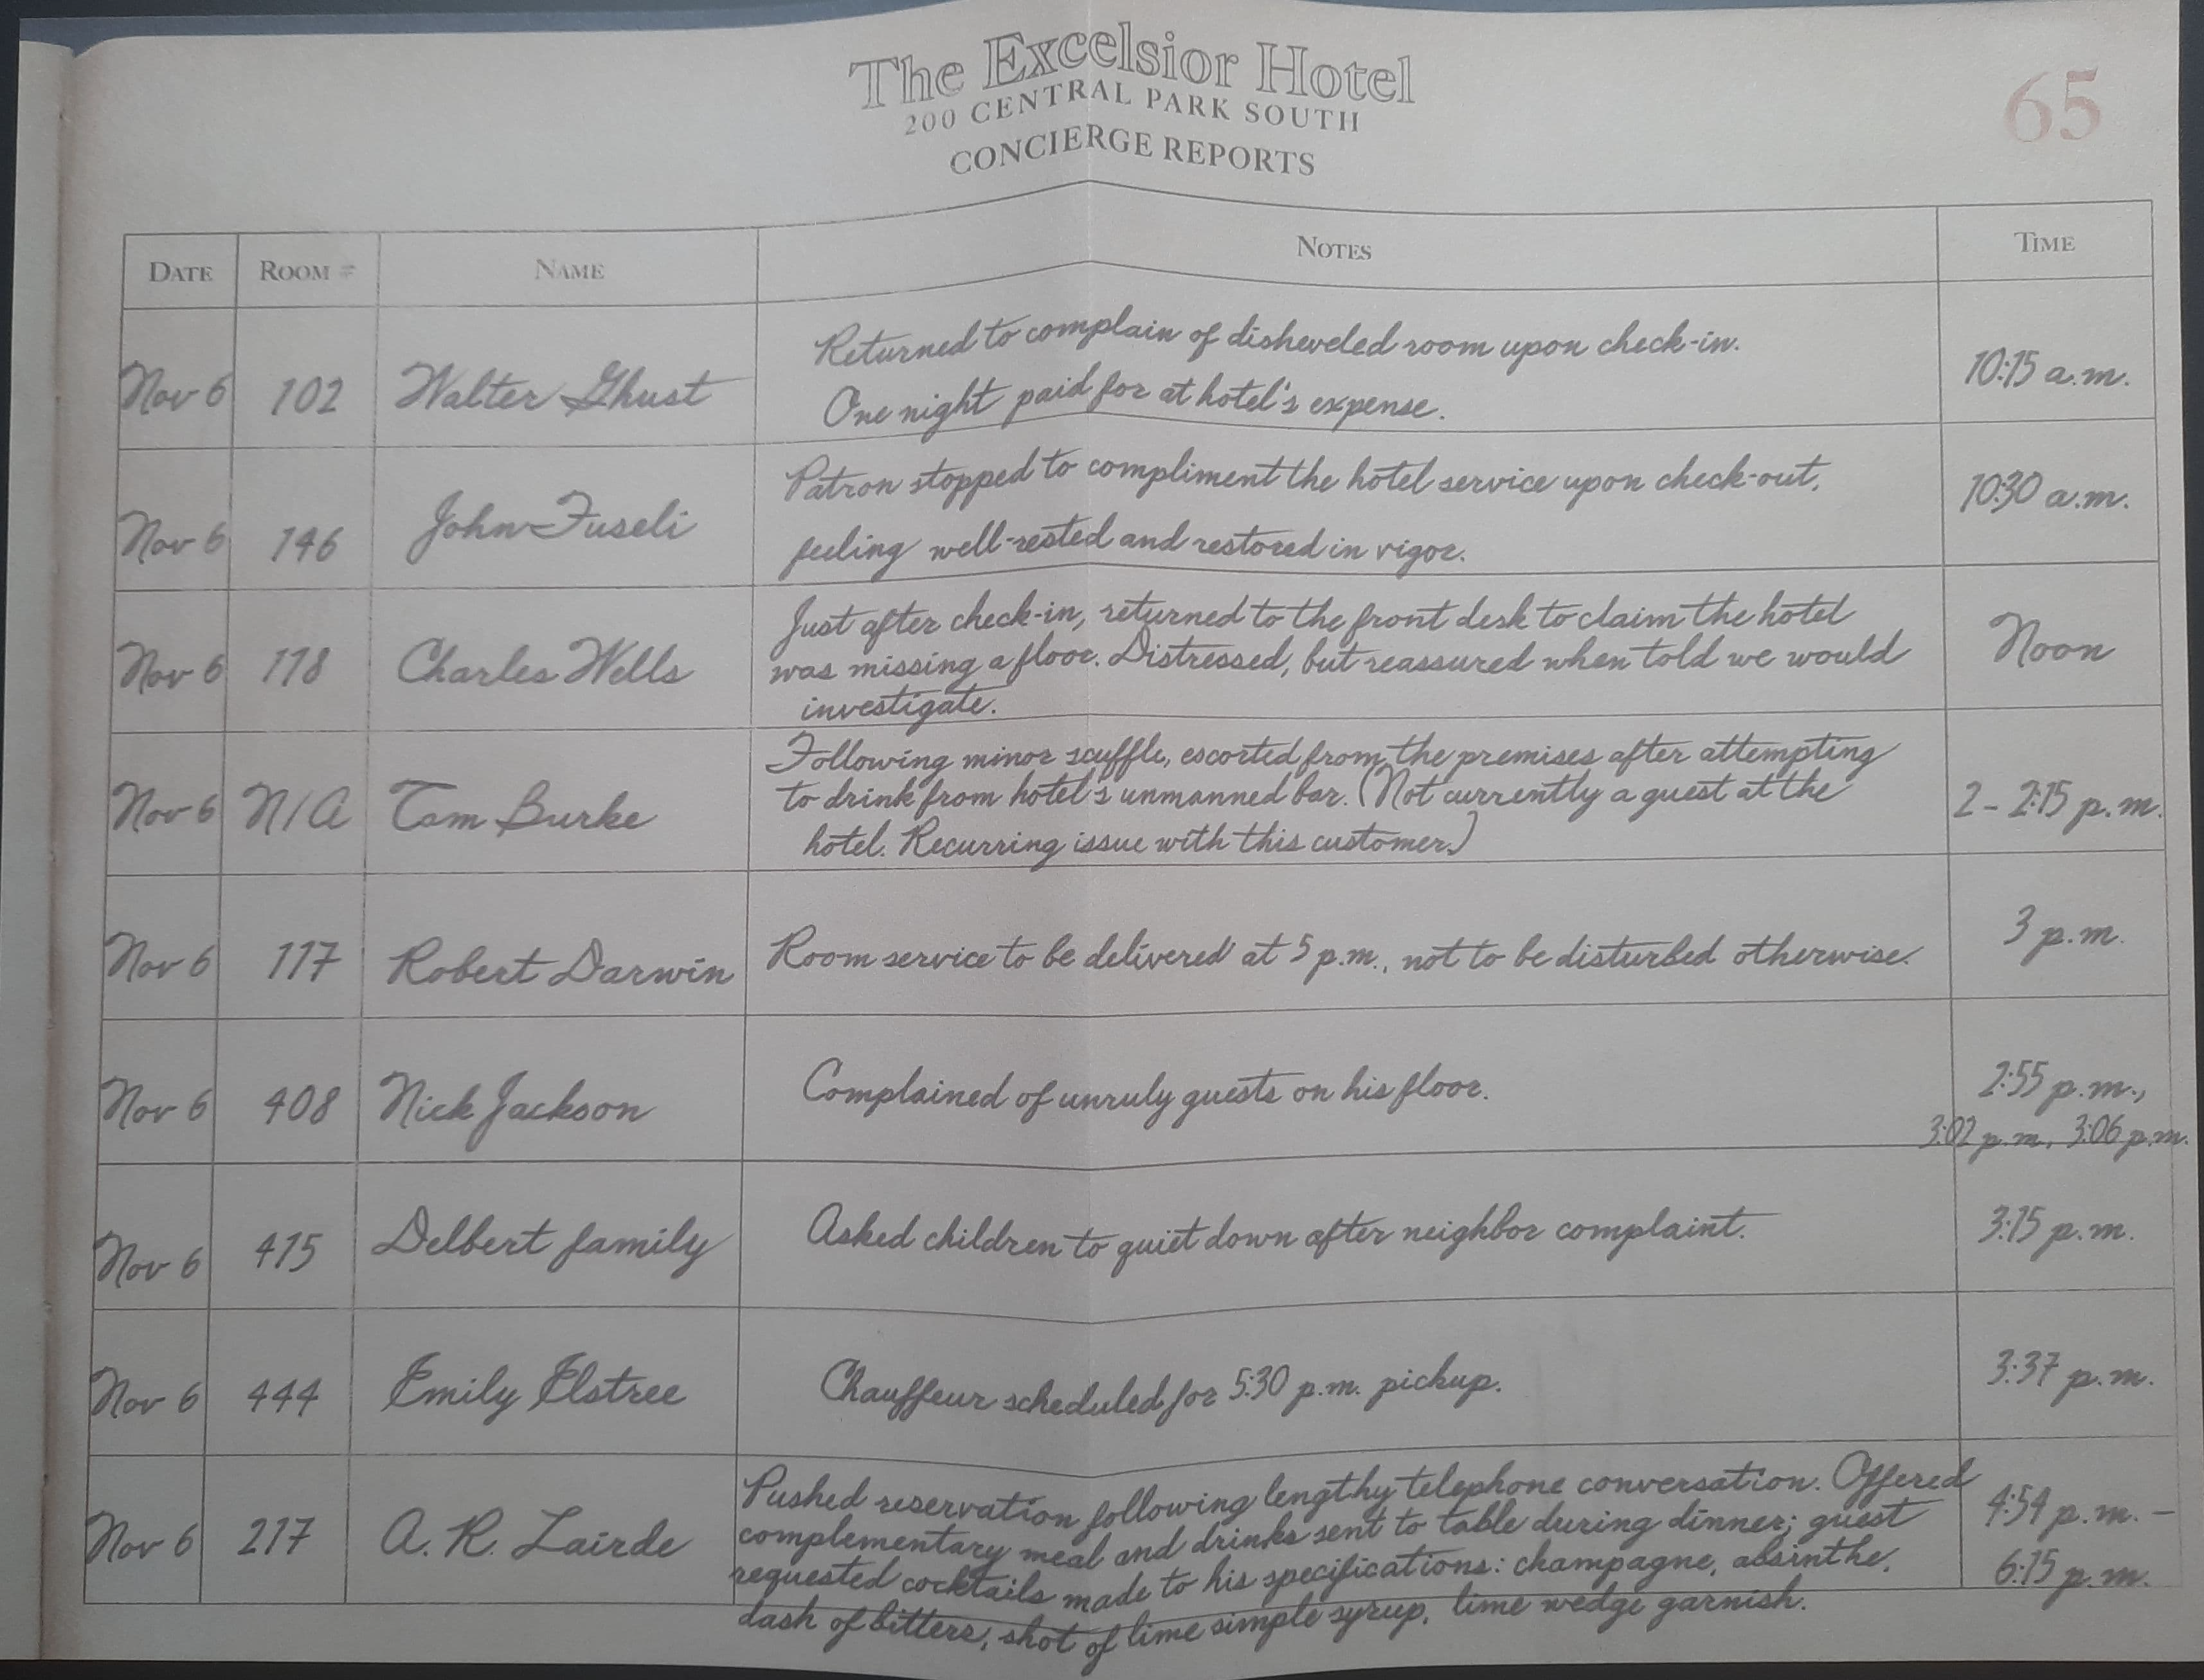 The Excelsior Hotel
200 CENTRAL PARK SOUTH
CONCIERGE REPORTS
65
DATE ROOM # NAME NOTES TIME
Nov 6 102 Walter Ghust Returned to complain of disheveled room upon check-in. 10:15 a.m.
One night paid for at hotel's expense.
Nov 6 146 John Fuseli Patron stopped to compliment the hotel service upon check-out, 10:30 a.m.
feeling well-rested and restored in vigor.
Nov 6 178 Charles Wells Just after check-in, returned to the front desk to claim the hotel Noon
was missing a floor. Distressed, but reassured when told we would
investigate.
Nov 6 N/A Tom Burke Following minor scuffle, escorted from the premises after attempting 2 - 2:15 p.m.
to drink from hotel's unmanned bar. (Not currently a guest at the
hotel. Recurring issue with this customer.)
Nov 6 117 Robert Darwin Room service to be delivered at 5 p.m., not to be disturbed otherwise. 3 p.m.
Nov 6 408 Nick Jackson Complained of unruly guests on his floor. 2:55 p.m.,
3:02 p.m., 3:06 p.m.
Nov 6 415 Delbert family Asked children to quiet down after neighbor complaint. 3:15 p.m.
Nov 6 444 Emily Elstree Chauffeur scheduled for 5:30 p.m. pickup. 3:37 p.m.
Nov 6 217 A. R. Lairde Pushed reservation following lengthy telephone conversation. Offered 4:54 p.m. -
complementary meal and drinks sent to table during dinner; guest 6:15 p.m.
requested cocktails made to his specifications: champagne, absinthe,
dash of bitters, shot of lime simple syrup, lime wedge garnish.